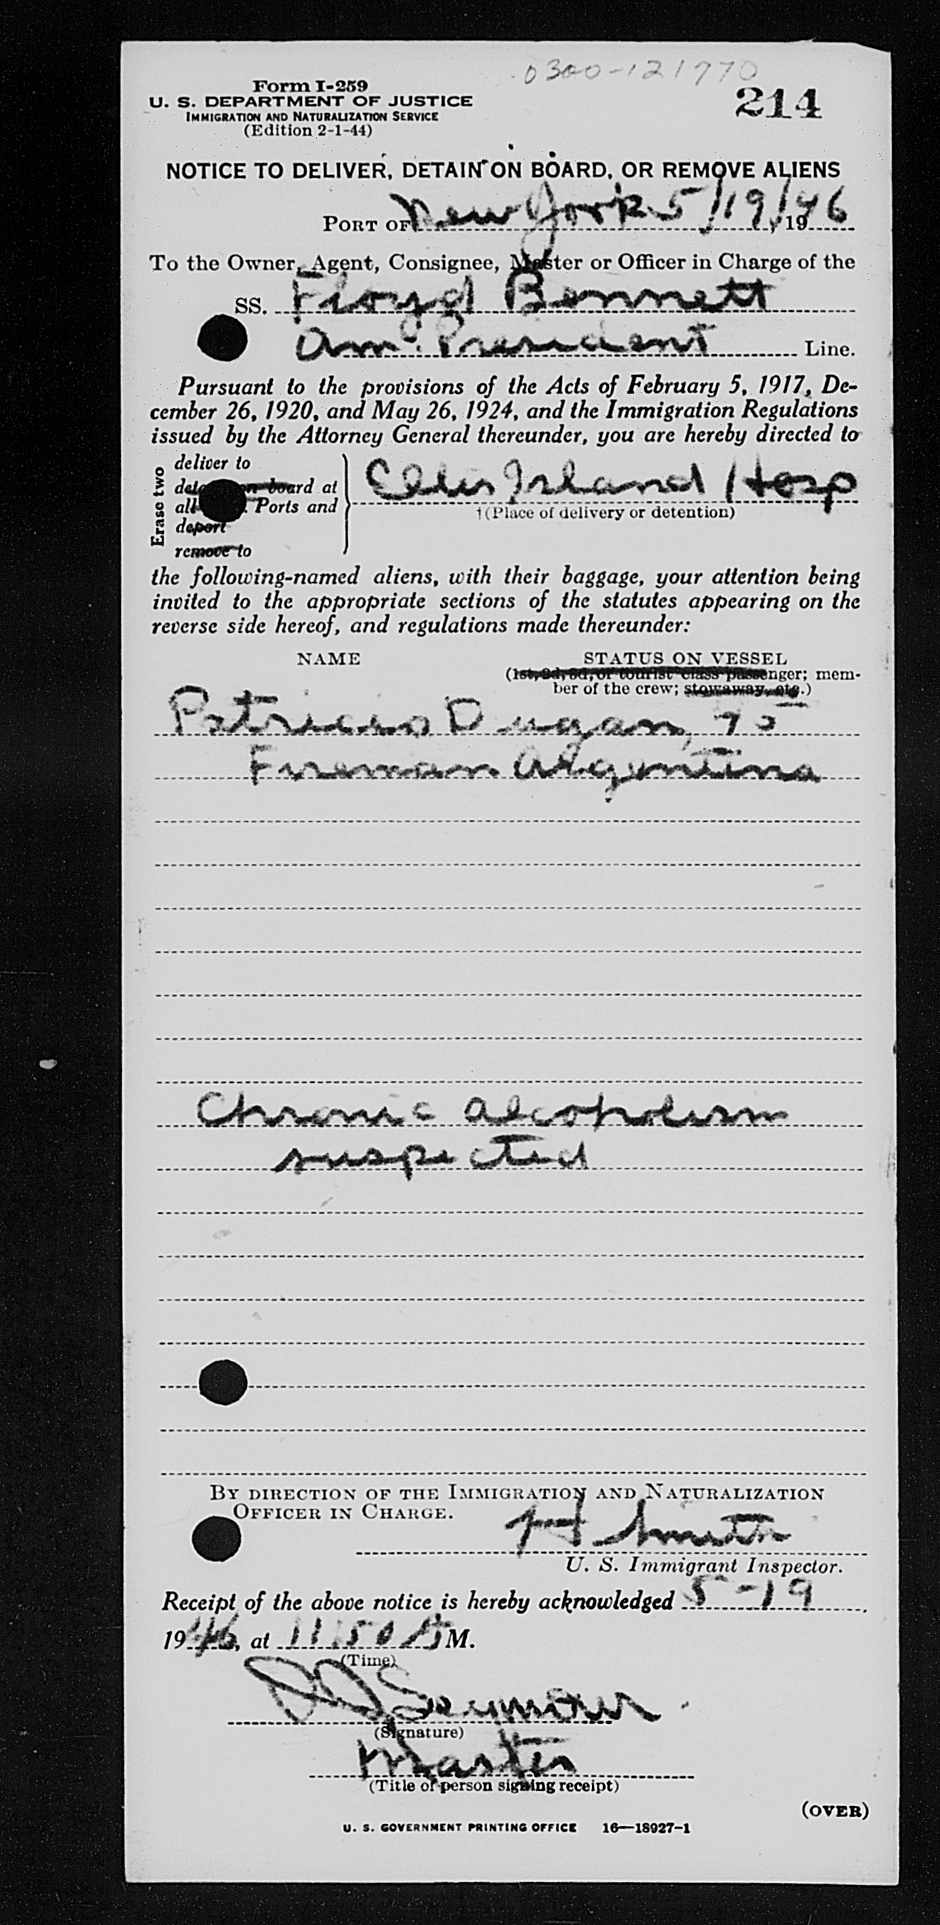 0300-121770
Form I-259
214
U. S. DEPARTMENT OF JUSTICE
IMMIGRATION AND NATURALIZATION SERVICE
(Edition 2-1-44)
NOTICE TO DELIVER, DETAIN ON BOARD, OR REMOVE ALIENS
PORT OF New York 5/19/, 1946
To the Owner, Agent, Consignee, Master or Officer in Charge of the
SS. Floyd Bennett
Am. President Line.
Pursuant to the provisions of the Acts of February 5, 1917, De-
cember 26, 1920, and May 26, 1924, and the Immigration Regulations
issued by the Attorney General thereunder, you are hereby directed to
Erase two
deliver to
board at
all Ports and
deport
remove to
Ellis Island Hosp
†(Place of delivery or detention)
the following-named aliens, with their baggage, your attention being
invited to the appropriate sections of the statutes appearing on the
reverse side hereof, and regulations made thereunder:
NAME STATUS ON VESSEL
(1st, 2d, 3d, or tourist class passenger; mem-
ber of the crew; stowaway, etc.)
Patricio Dugan,
Fireman Argentina
Chronic alcoholism
suspected
BY DIRECTION OF THE IMMIGRATION AND NATURALIZATION
OFFICER IN CHARGE.
H Smith
U. S. Immigrant Inspector.
Receipt of the above notice is hereby acknowledged 5-19,
1946, at 11:50 A M.
(Time)
Seymour
(Signature)
Master
(Title of person signing receipt)
(OVER)
U. S. GOVERNMENT PRINTING OFFICE 16—18927-1